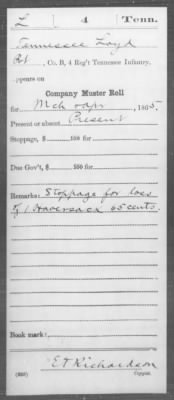 L | 4 | Tenn.
Tennessee Loyd
Pvt, Co. B, 4 Reg't Tennessee Infantry.
Appears on
Company Muster Roll
for Mch & Apr, 1865.
Present or absent Present
Stoppage, $ 100 for
Due Gov't, $ 100 for
Remarks: Stoppage for loss
of 1 Haversack 65 cents.
Book mark:
E T Richardson
Copyist.